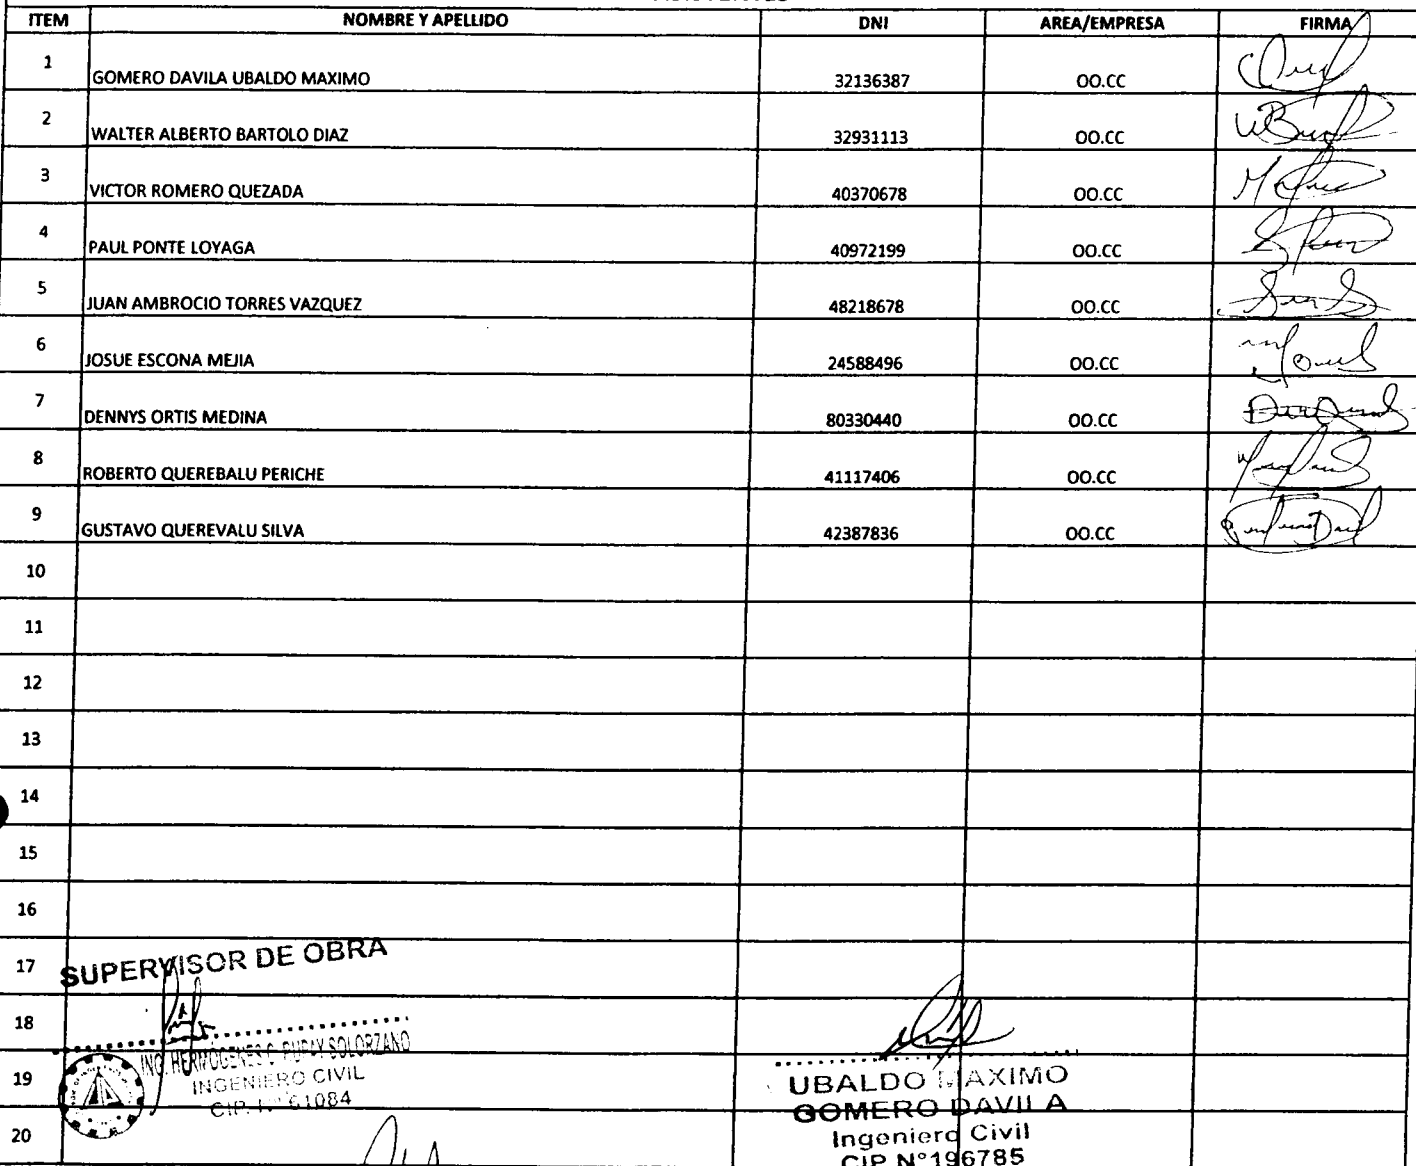 ITEM NOMBRE Y APELLIDO DNI AREA/EMPRESA FIRMA
1 GOMERO DAVILA UBALDO MAXIMO 32136387 OO.CC
2 WALTER ALBERTO BARTOLO DIAZ 32931113 OO.CC
3 VICTOR ROMERO QUEZADA 40370678 OO.CC
4 PAUL PONTE LOYAGA 40972199 OO.CC
5 JUAN AMBROCIO TORRES VAZQUEZ 48218678 OO.CC
6 JOSUE ESCONA MEJIA 24588496 OO.CC
7 DENNYS ORTIS MEDINA 80330440 OO.CC
8 ROBERTO QUEREBALU PERICHE 41117406 OO.CC
9 GUSTAVO QUEREVALU SILVA 42387836 OO.CC
10
11
12
13
14
15
16
17
SUPERVISOR DE OBRA
18
ING. HERMOGENES C. RUPAY SOLORZANO
19
INGENIERO CIVIL
CIP. N° 61084
UBALDO MAXIMO
GOMERO DAVILA
20
Ingeniero Civil
CIP N°196785